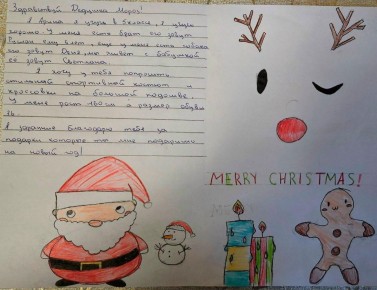 Здравствуй Дедушка Мороз!
Я Арина я учусь в 6 классе, я учусь
хорошо У меня есть брат его зовут
Роман ему 8 лет, еще у меня есть
зовут мы живем с бабушкой
её зовут Светлана.
Я хочу у тебя попросить
спортивной костюм и
кросовки на большой подошве.
У меня рост 160 см а размер обуви
Я заранние благодарю тебя за
подарки которые ты мне подаришь
на новый год!
MERRY CHRISTMAS!